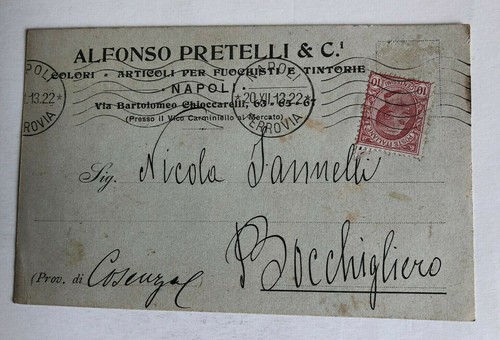 ALFONSO PRETELLI & C.i
COLORI - ARTICOLI PER FUOCHISTI E TINTORIE
NAPOLI
Via Bartolomeo Chioccarelli, 63 - 65 - 67
(Presso il Vico Carminiello al Mercato)
*20.VII.13.22*
FERROVIA
.13.22*
ROVIA
10 10
Sig. Nicola Iannelli
Bocchigliero
(Prov. di Cosenza